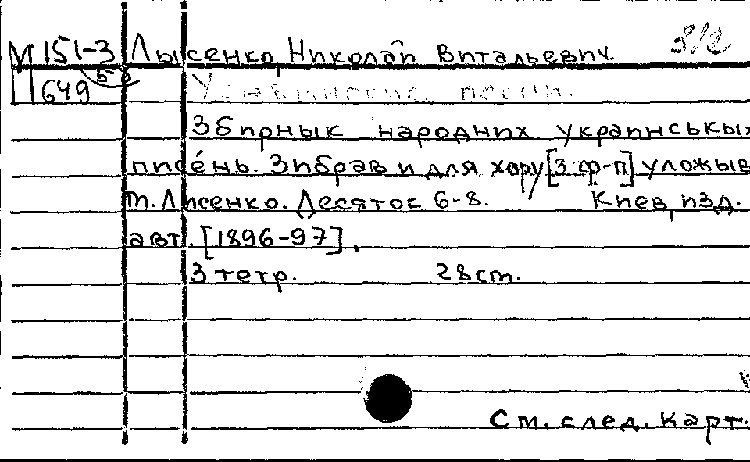 М 151-3 Лысенко, Николай Витальевич.
649
Украинские песни.
Збирнык народних украинськых
писень. Зибрав и для хору [з ф-п] уложыв
М. Лисенко. Десяток 6-8. Киев, изд.
авт. [1896-97].
3 тетр. 28 cm.
См. след. карт.